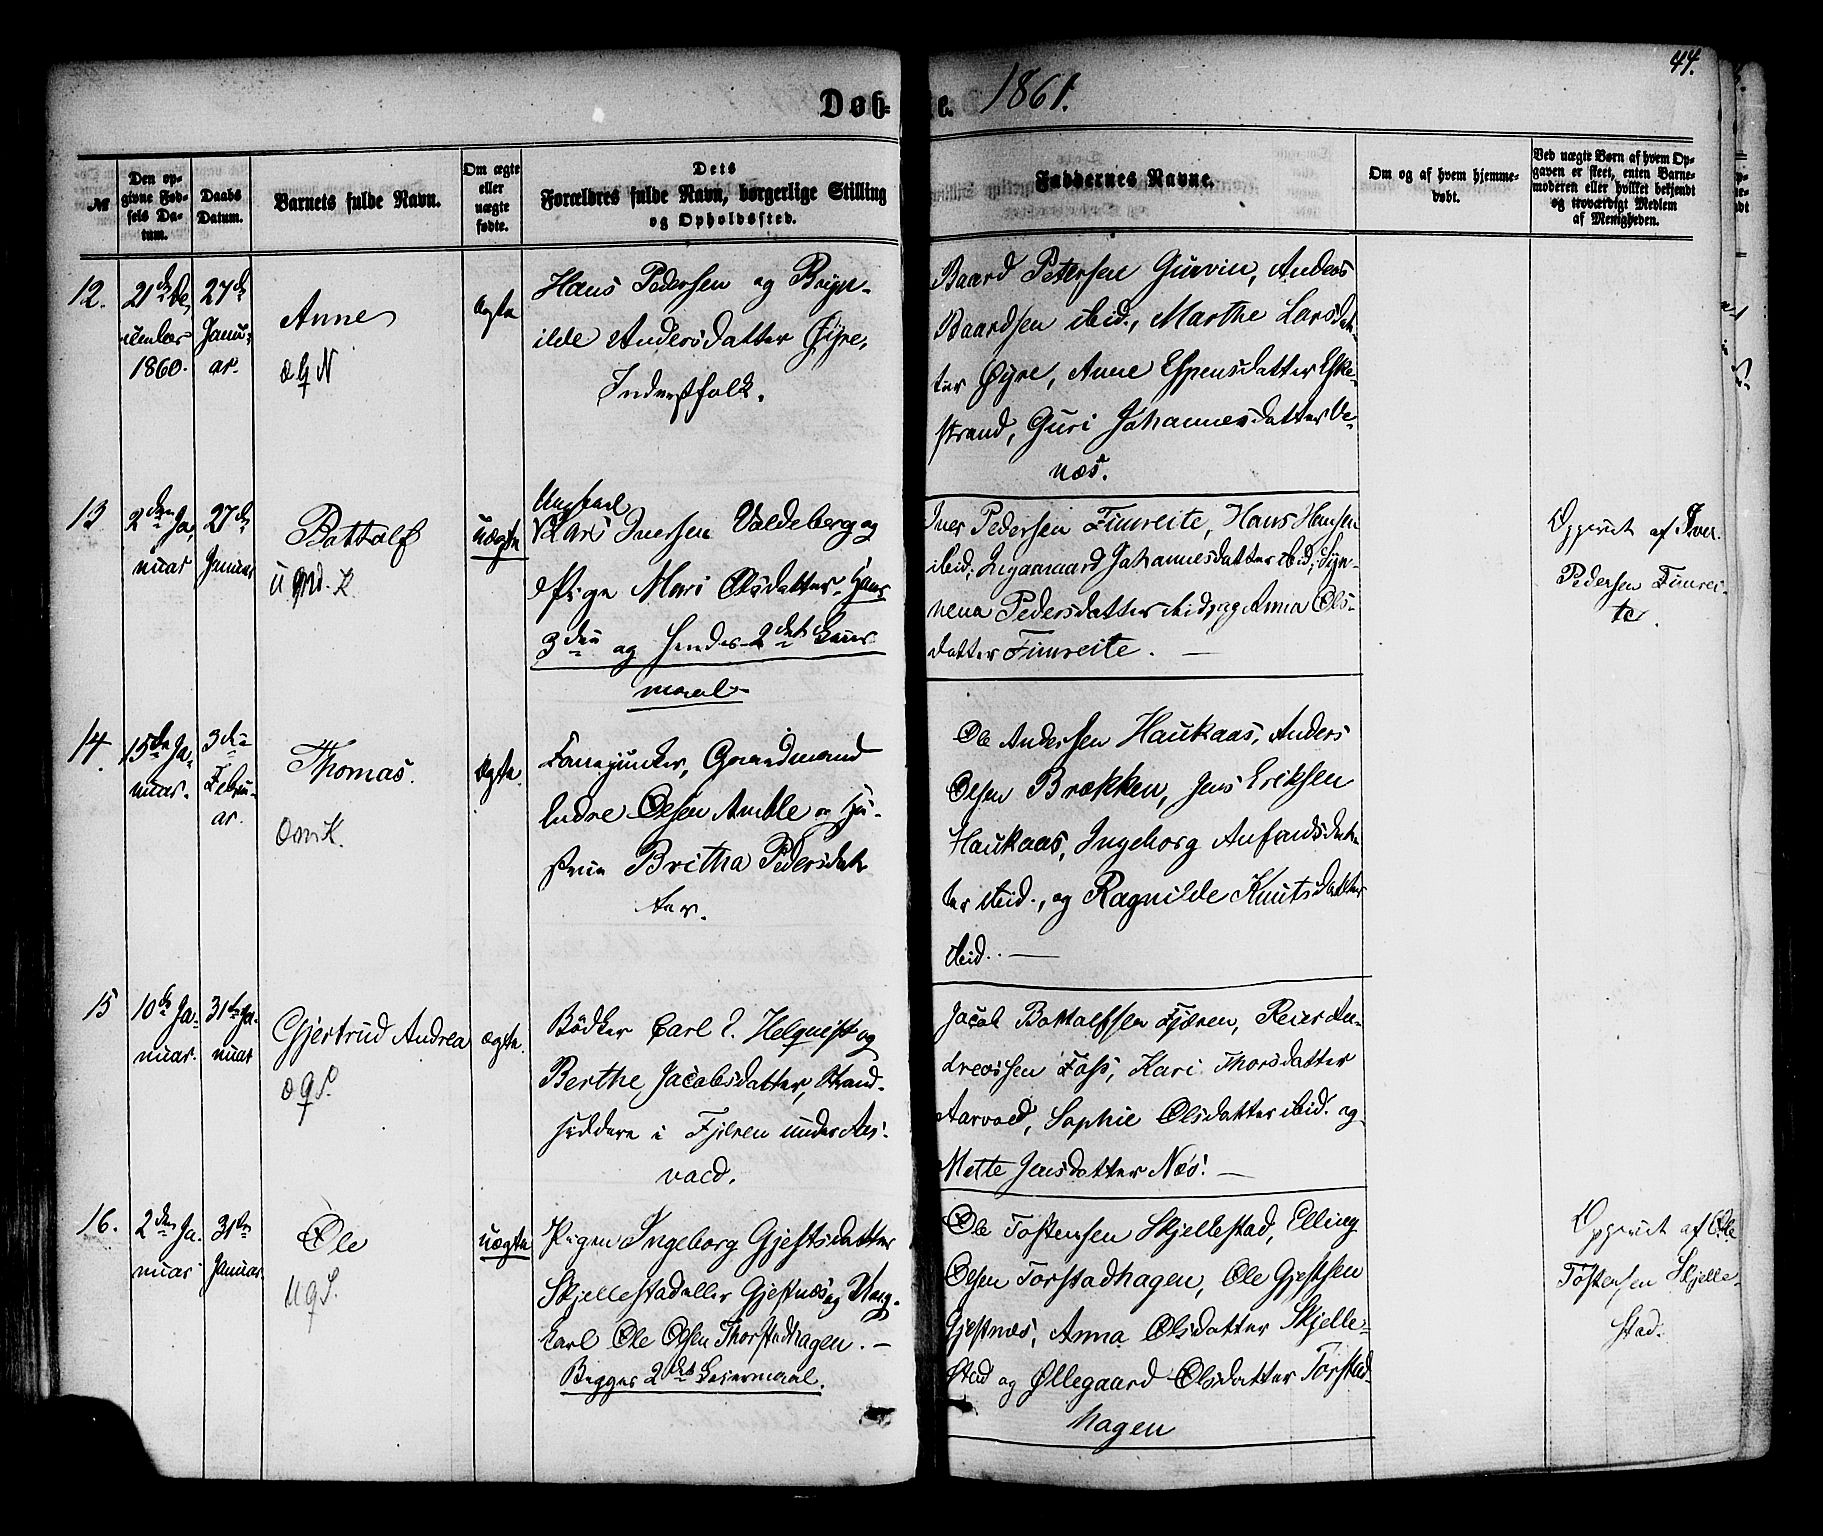 44.
Døb- te. 1861.
№
Den op-
givne Fød-
sels Da-
tum.
Daabs
Datum.
Barnets fulde Navn.
Om ægte
eller
uægte
fødte.
Dets
Forældres fulde Navn, borgerlige Stilling
og Opholdssted.
Faddernes Navne.
Om og af hvem hjemme-
døbt.
Ved uægte Børn af hvem Op-
gaven er skeet, enten Barne-
moderen eller hvilket bekjendt
og troværdigt Medlem
af Menigheden.
12.
21de De,
cember
1860.
27de
Janu-
ar.
Anne
ægte
Hans Pedersen og Bryn-
ilde Andersdatter Øyre,
Inderstfolk.
Baard Petersen Gurvin, Anders
Baardsen ibid., Marthe Larsdat-
ter Øyre, Anne Espensdatter Eske-
strand, Guri Johannesdatter Ve-
næs.
13
2den Ja,
nuar
27de
Januar
Bottolf
uægte
Ungkarl
Iversen Valdeberg og
Pige Mari Olsdatter. Hans
3die og Hendes 2det Leier-
maal
Iver Pedersen Fimreite, Hans Hansen
ibid, Johannesdatter ibid, Syn-
neva Pedersdatter ibid og Anna Ols-
datter Fimreite.
Opgivet af Iver
Pedersen Fimrei-
te.
14.
15de Ja-
nuar.
3die
Febru-
ar.
Thomas.
ægte.
Fanejunker, Gaardmand
Endre Olsen Amble og Hu-
strue Britha Pedersdat-
ter.
Ole Andersen Haukaas, Anders
Olsen Brækken, Jens Eriksen
Haukaas, Ingeborg Anfindsdat-
ter ibid., og Ragnilde Knutsdatter
ibid.
15
10de Ja-
nuar.
31te Ja-
nuar
Gjertrud Andrea
ægte.
Bödker Carl Helquist og
Berthe Jacobsdatter, Strand-
siddere i Fjæren under Aar-
vold.
Jacob Bottolfsen Fjæren, Reier An-
dreassen Foss, Kari Thorsdatter
Aarvold, Sophie Olsdatter ibid. og
Mette Jensdatter Næs.
16.
2den Ja-
nuar
31te
Januar
Ole
uægte
Pigen Ingeborg Gjestsdatter
Skjellestad eller Gjestnæs og Ung-
karl Ole Olsen Thorstadhagen.
Begges 2det Leiermaal.
Ole Tostensen Skjellestad, Elling
Olsen Torstadhagen, Ole Gjestsen
Gjestnæs, Anna Olsdatter Skjelle-
stad og Øllegaard Olsdatter Torstad-
hagen
Opgivet af Ole
Tostensen Skjelle-
stad.